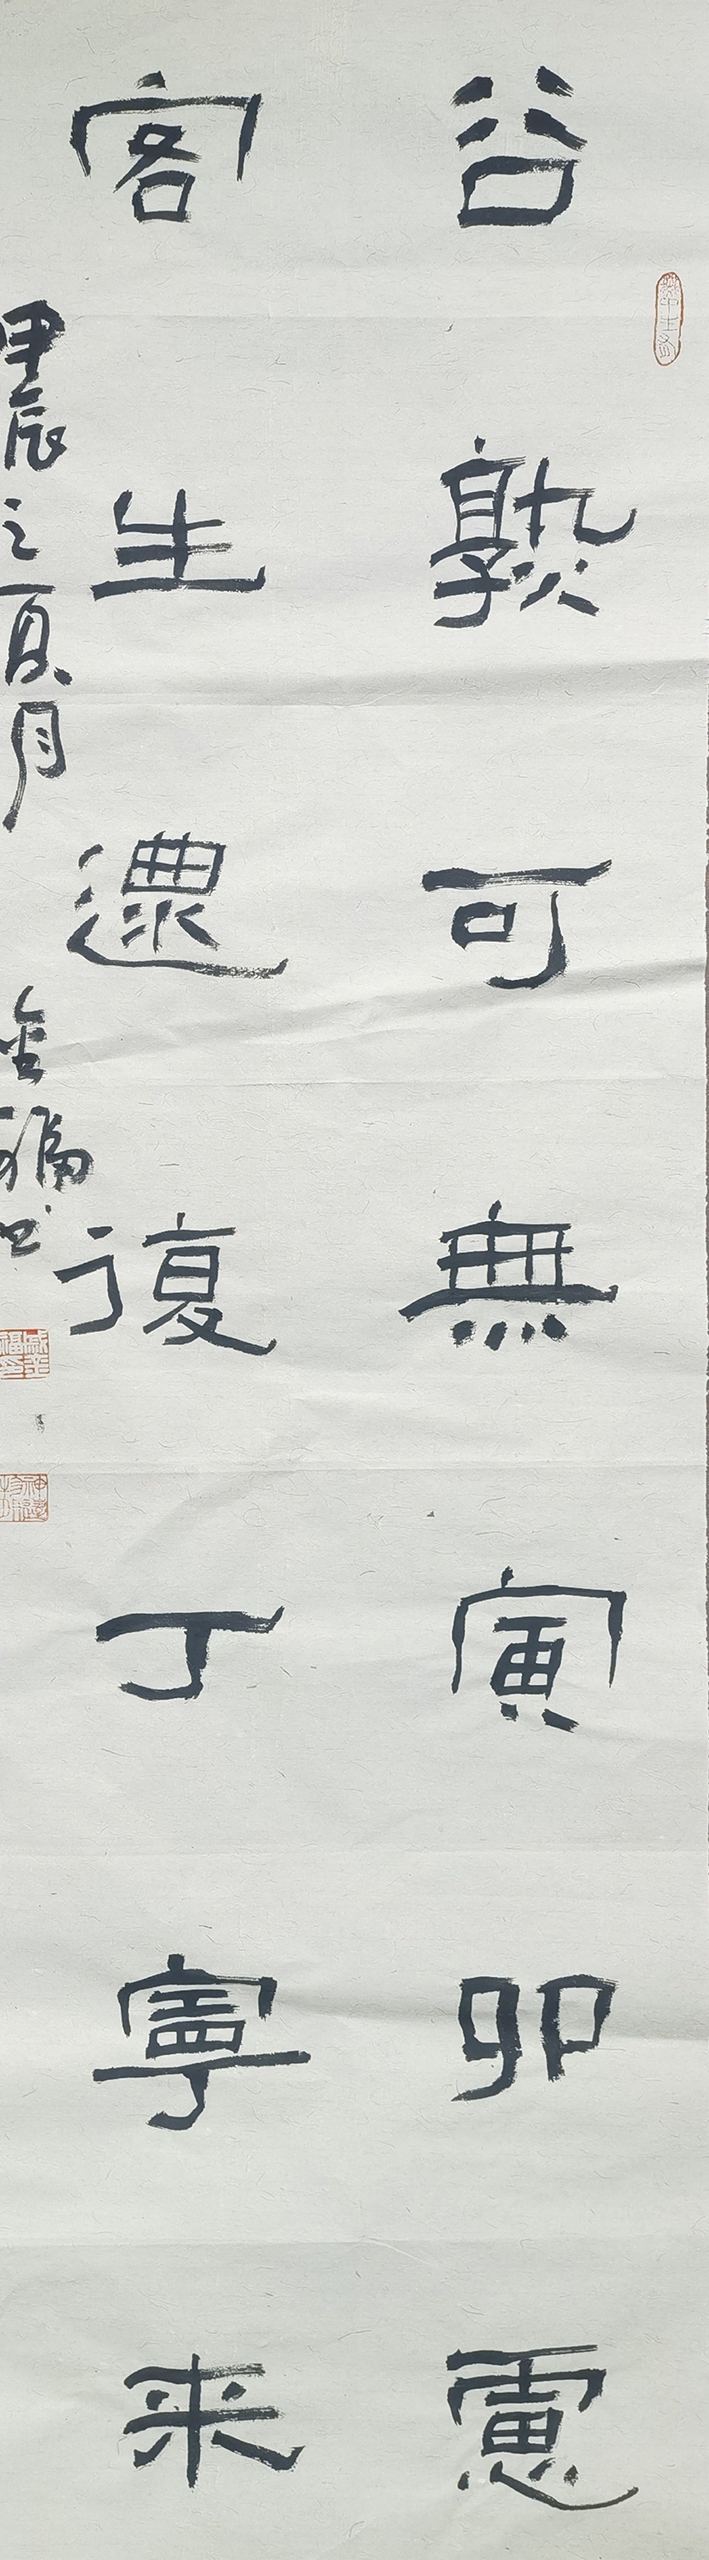 谷熟可無寅卯慮
客生還復丁寧来
甲辰之夏月 金福书